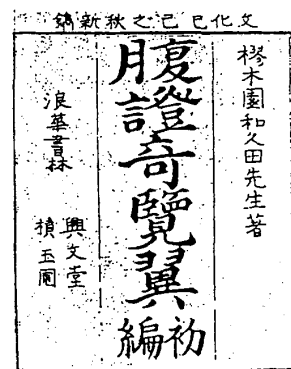 文化己巳之秋新鐫
樛木園和久田先生著
腹證奇覽翼
初編
浪華書林
興文堂
積玉圃